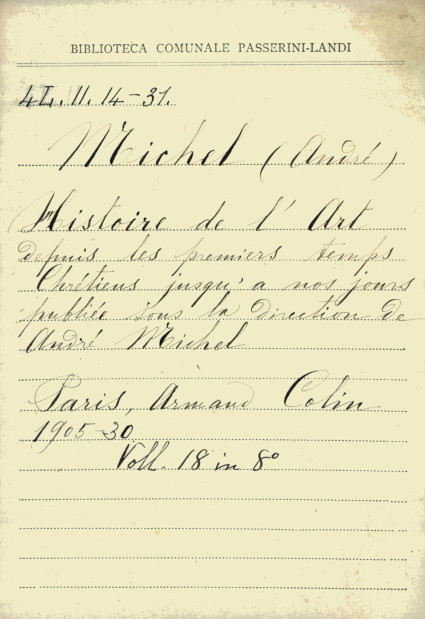 BIBLIOTECA COMUNALE PASSERINI-LANDI
4L. II. 14-31.
Michel (André)
Histoire de l' Art
depuis les premiers temps
Chrétiens jusqu' a nos jours
publiée sous la direction de
André Michel
Paris, Armand Colin
1905-30
Voll. 18 in 8º